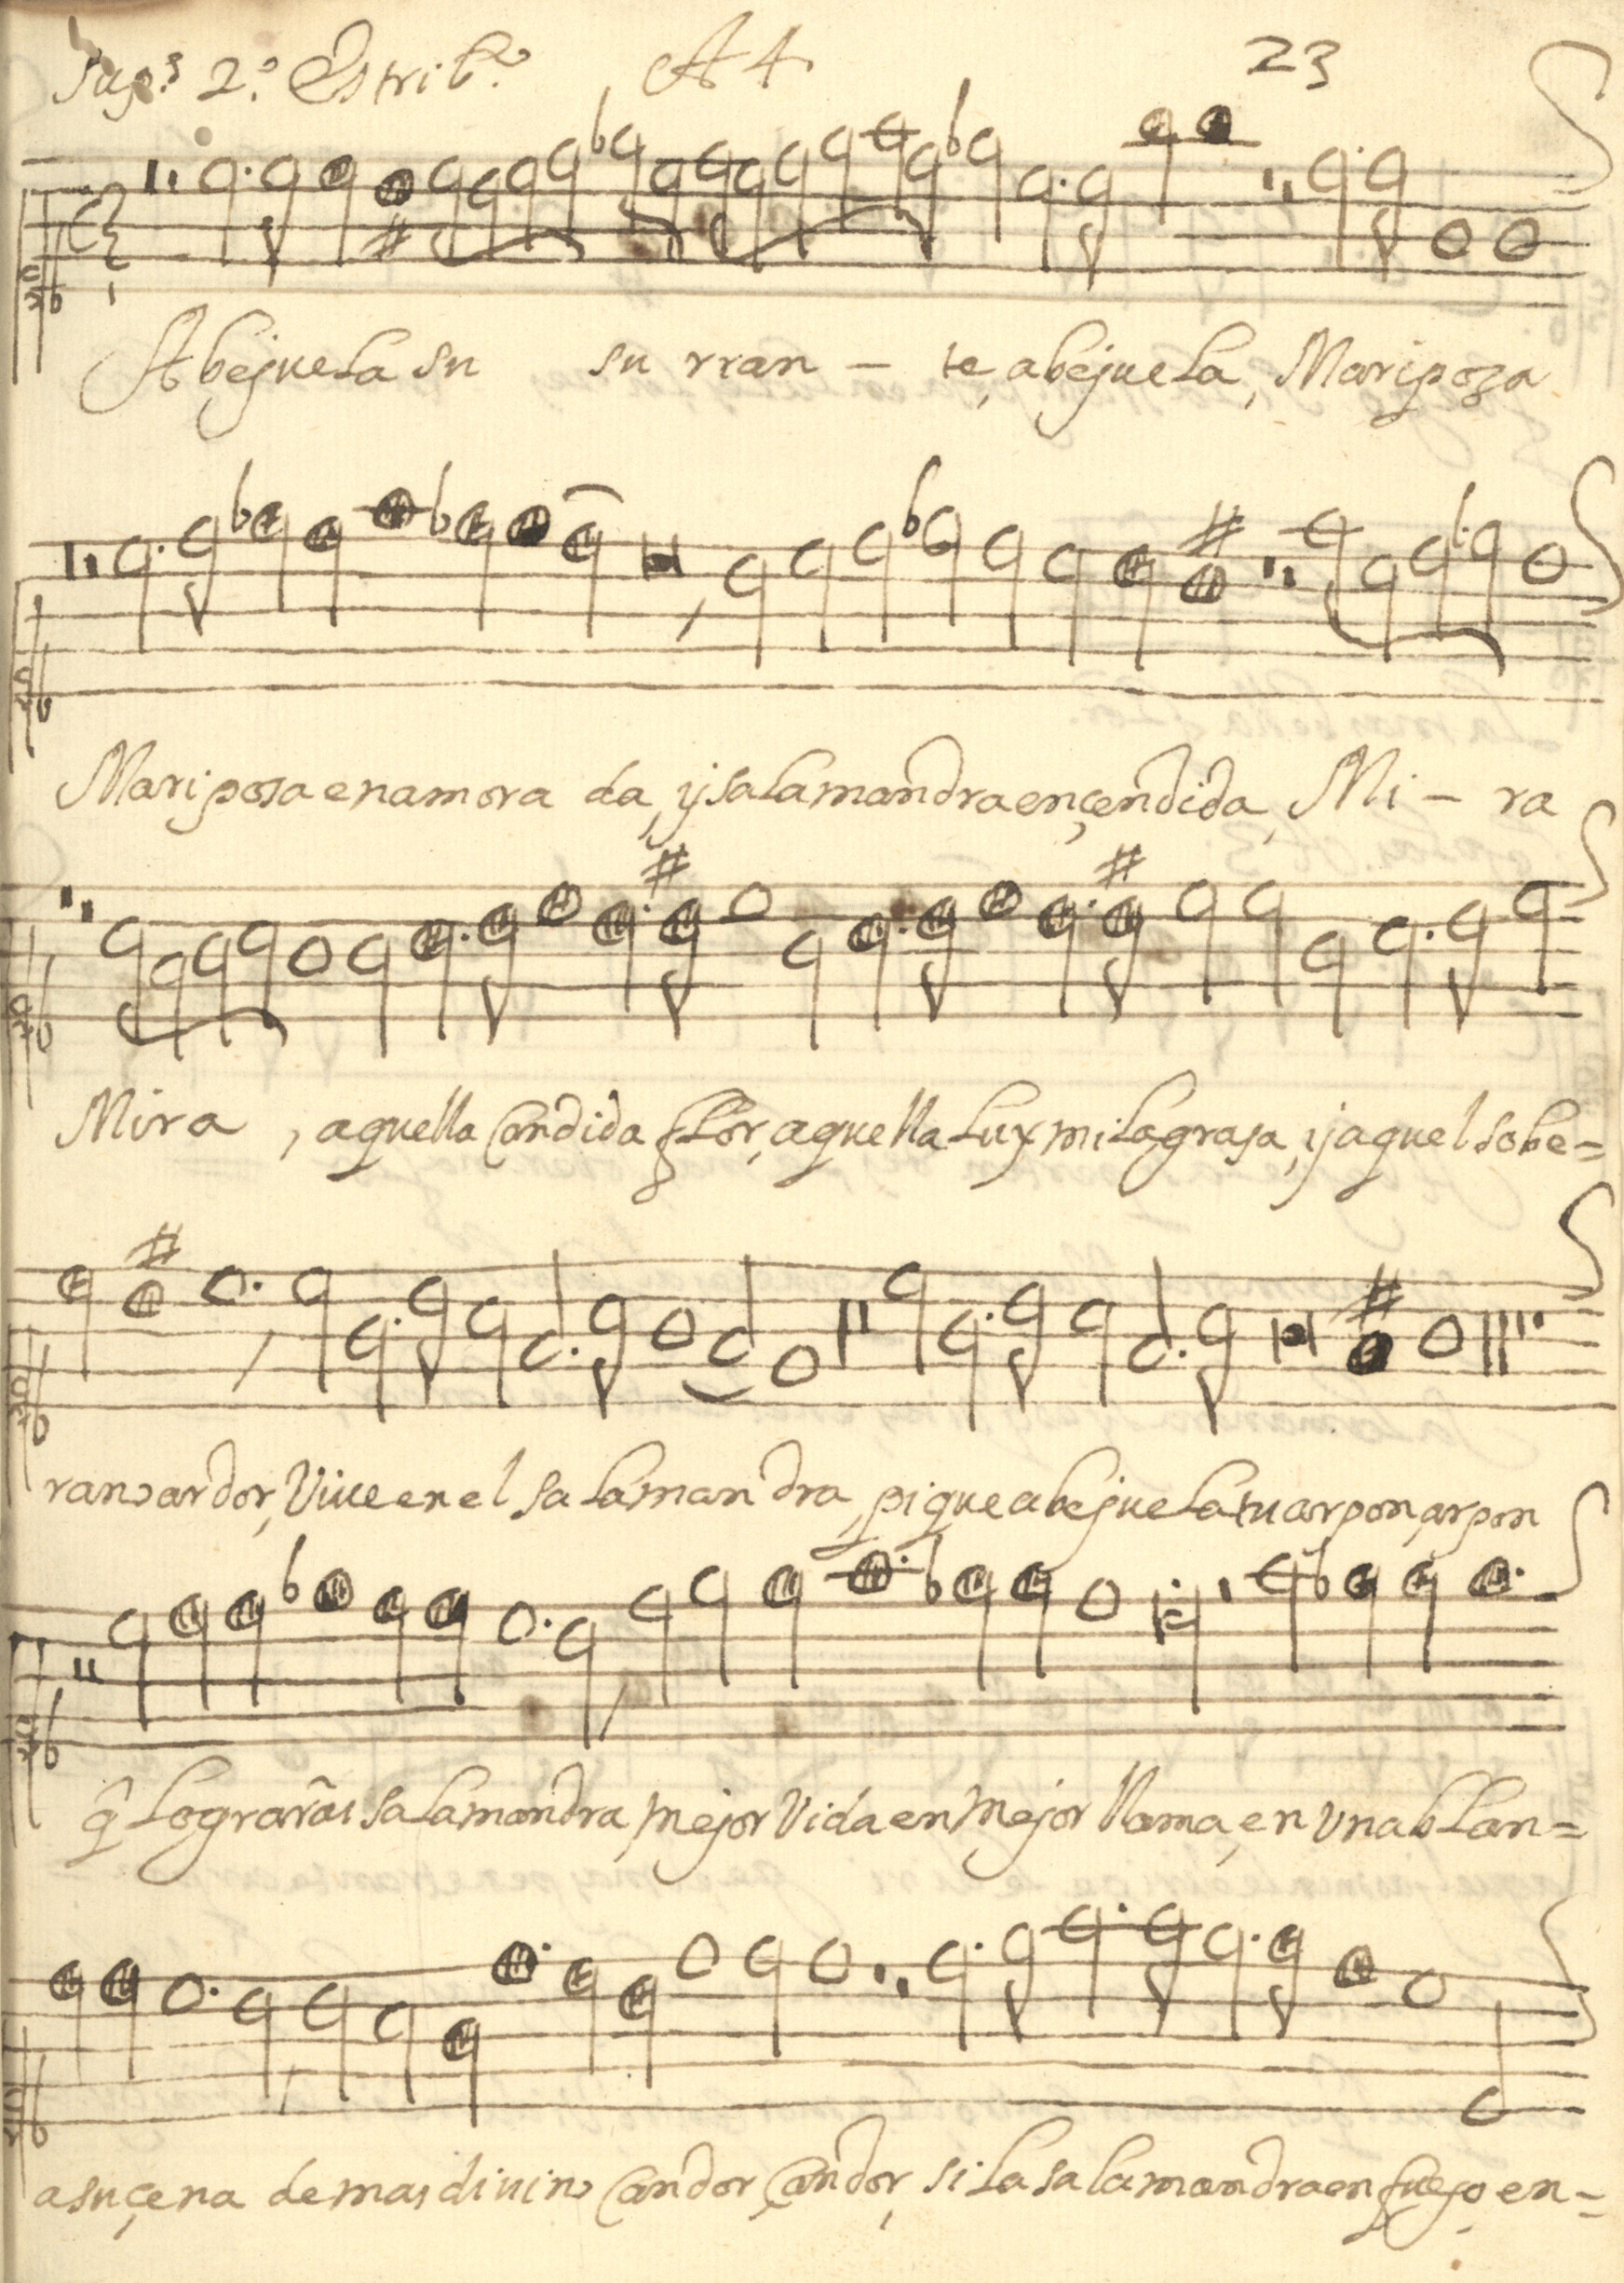 Sup.º 2.º Estrib.º A 4 23
Abejuela su su rran - te, abejuela, Maripoza
Mariposa enamora da, y salamandra ençendida, Mi - ra
Mira, aquella Candida flor, aquella Lux milagrasa, y aquel sobe=
rano ardor, Viue en el salamandra, pique abejuela tu arpon, arpon
q̃ Lograràs salamandra, mejor Vida en mejor llama, en vna blan=
asuçena de mas diuino Candor, Candor, si la salamandra en fuego en=